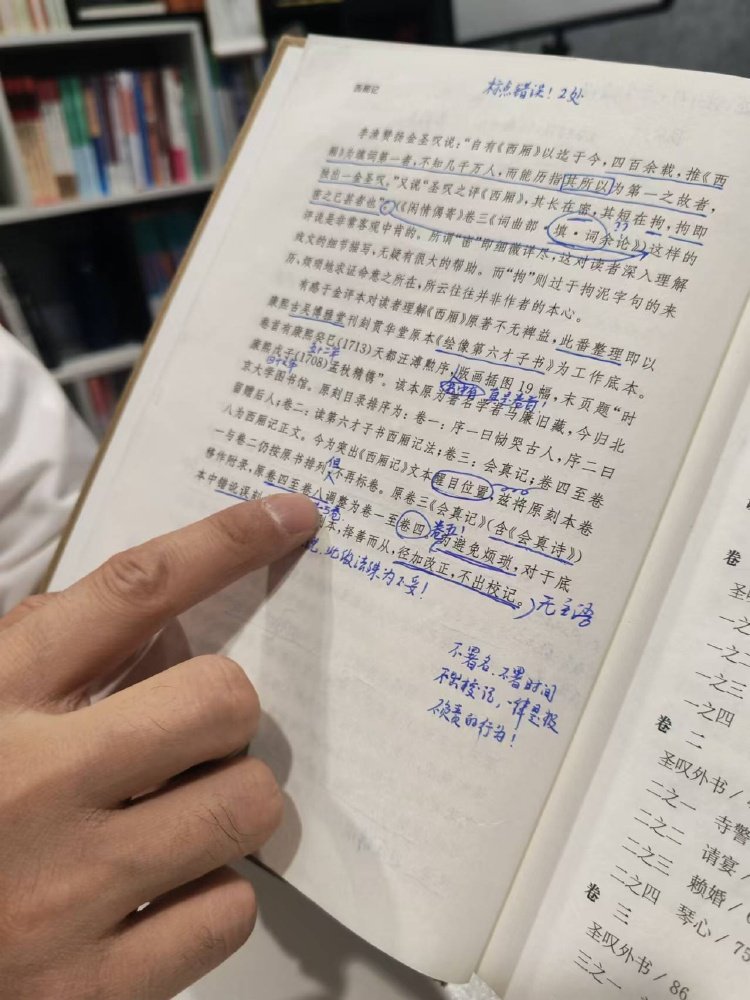 西厢记
标点错误！2处
李渔赞扬金圣叹说："自有《西厢》以迄于今，四百余载，推《西
厢》为填词第一者，不知几千万人，而能历指其所以为第一之故者，
独出一金圣叹。"又说"圣叹之评《西厢》，其长在密，其短在拘，拘即
密之已甚者也"。(《闲情偶寄》卷三《词曲部·填·词余论》)这样的
??
评说是非常客观中肯的。所谓"密"即细微详尽，这对读者深入理解
戏文的细节描写，无疑有很大的帮助。而"拘"则过于拘泥字句的来
历，烦琐地求证命意之所在，所云往往并非作者的本心。
有感于金评本对读者理解《西厢》原著不无裨益，此番整理即以
康熙古吴博雅堂刊刻贯华堂原本《绘像第六才子书》为工作底本。
卷首有康熙癸巳(1713)天都汪溥勲序，版画插图19幅，末页题"时
五十二年
康熙戊子(1708)孟秋精镌"。该本原为著名学者马廉旧藏，今归北
四十七年
京大学图书馆。原刻目录排序为：卷一：序一曰恸哭古人，序二曰
留赠后人；卷二：读第六才子书西厢记法；卷三：会真记；卷四至卷
八为西厢记正文。今为突出《西厢记》文本醒目位置，兹将原刻本卷
一与卷二仍按原书排列，不再标卷。原卷三《会真记》(含《会真诗》)
但
移作附录，原卷四至卷八调整为卷一至卷四 为避免烦琐，对于底
卷五！
本中错讹误刻
本，择善而从，径加改正，不出校记。
无主语
此做法殊为不妥！
不署名、不署时间
不出校记，一律是极
不负责的行为！
卷
圣叹
一之
一之二
一之三
一之四
卷 二
圣叹外书/
二之一 寺警
二之二 请宴/
二之三 赖婚/6
二之四 琴心/75
卷 三
圣叹外书/86
三之一